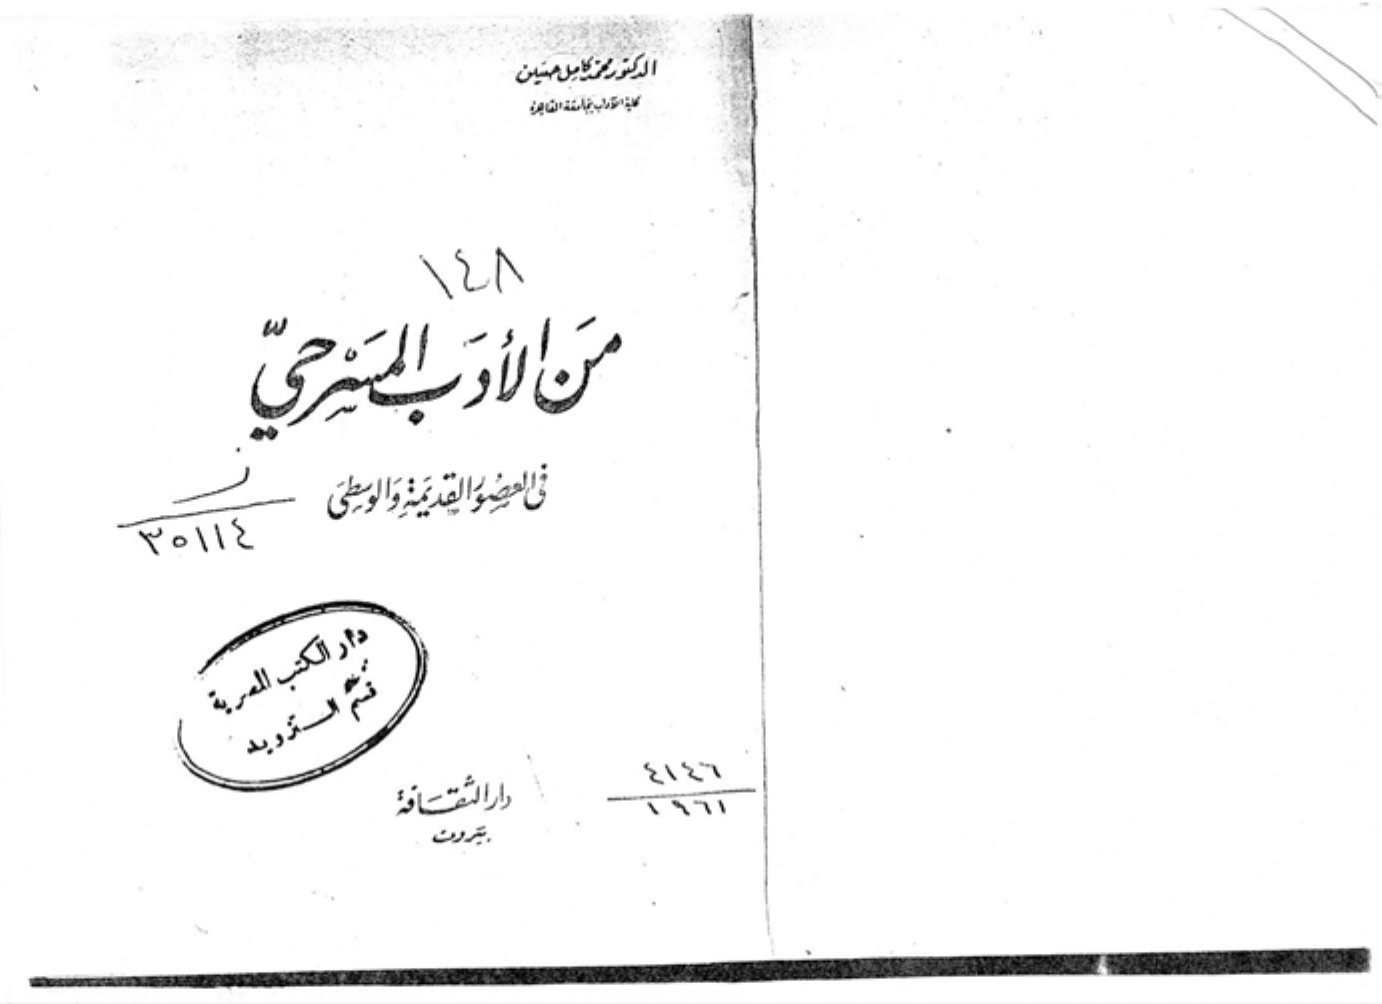 الدكتور محمد كامل حسين
كلية الآداب بجامعة القاهرة
١٤٨
من الأدَب المسَرحيّ
فى العصُور القديمَة وَالوسطىَ
ز
٣٥١١٤
دار الكتب المصرية
قسم التزويد
٤١٤٦
١٩٦١
دار الثقافة
بيروت